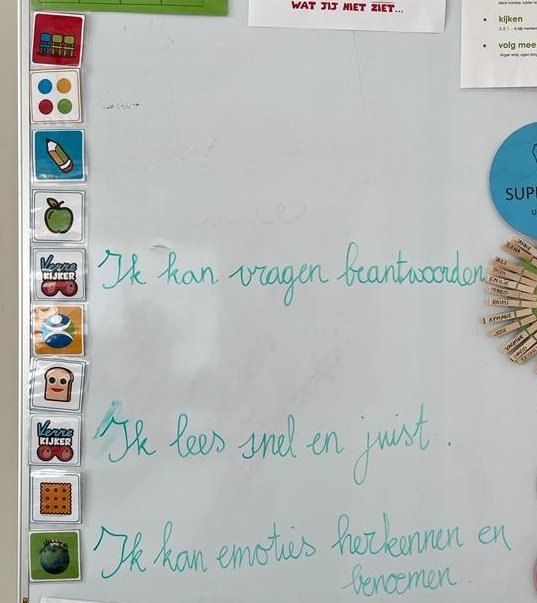 WAT JIJ NIET ZIET...
kijken
volg mee
SUP
Verre
KIJKER
Ik kan vragen beantwoorden
Verre
KIJKER
Ik lees snel en juist.
Ik kan emoties herkennen en
benoemen.